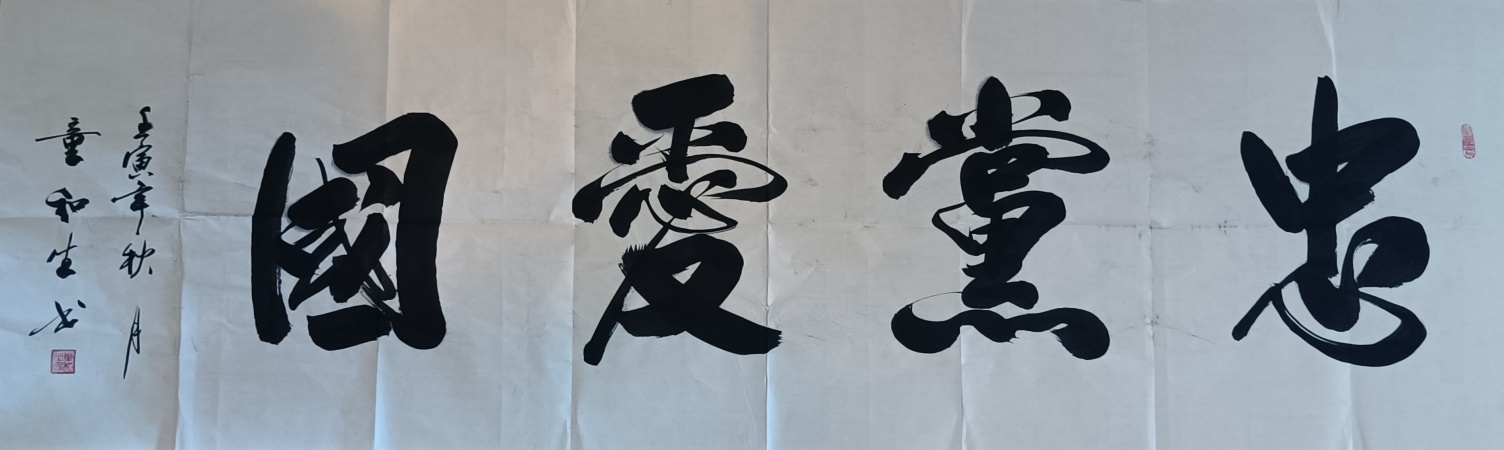 忠黨愛國
壬寅年秋月
童和生书